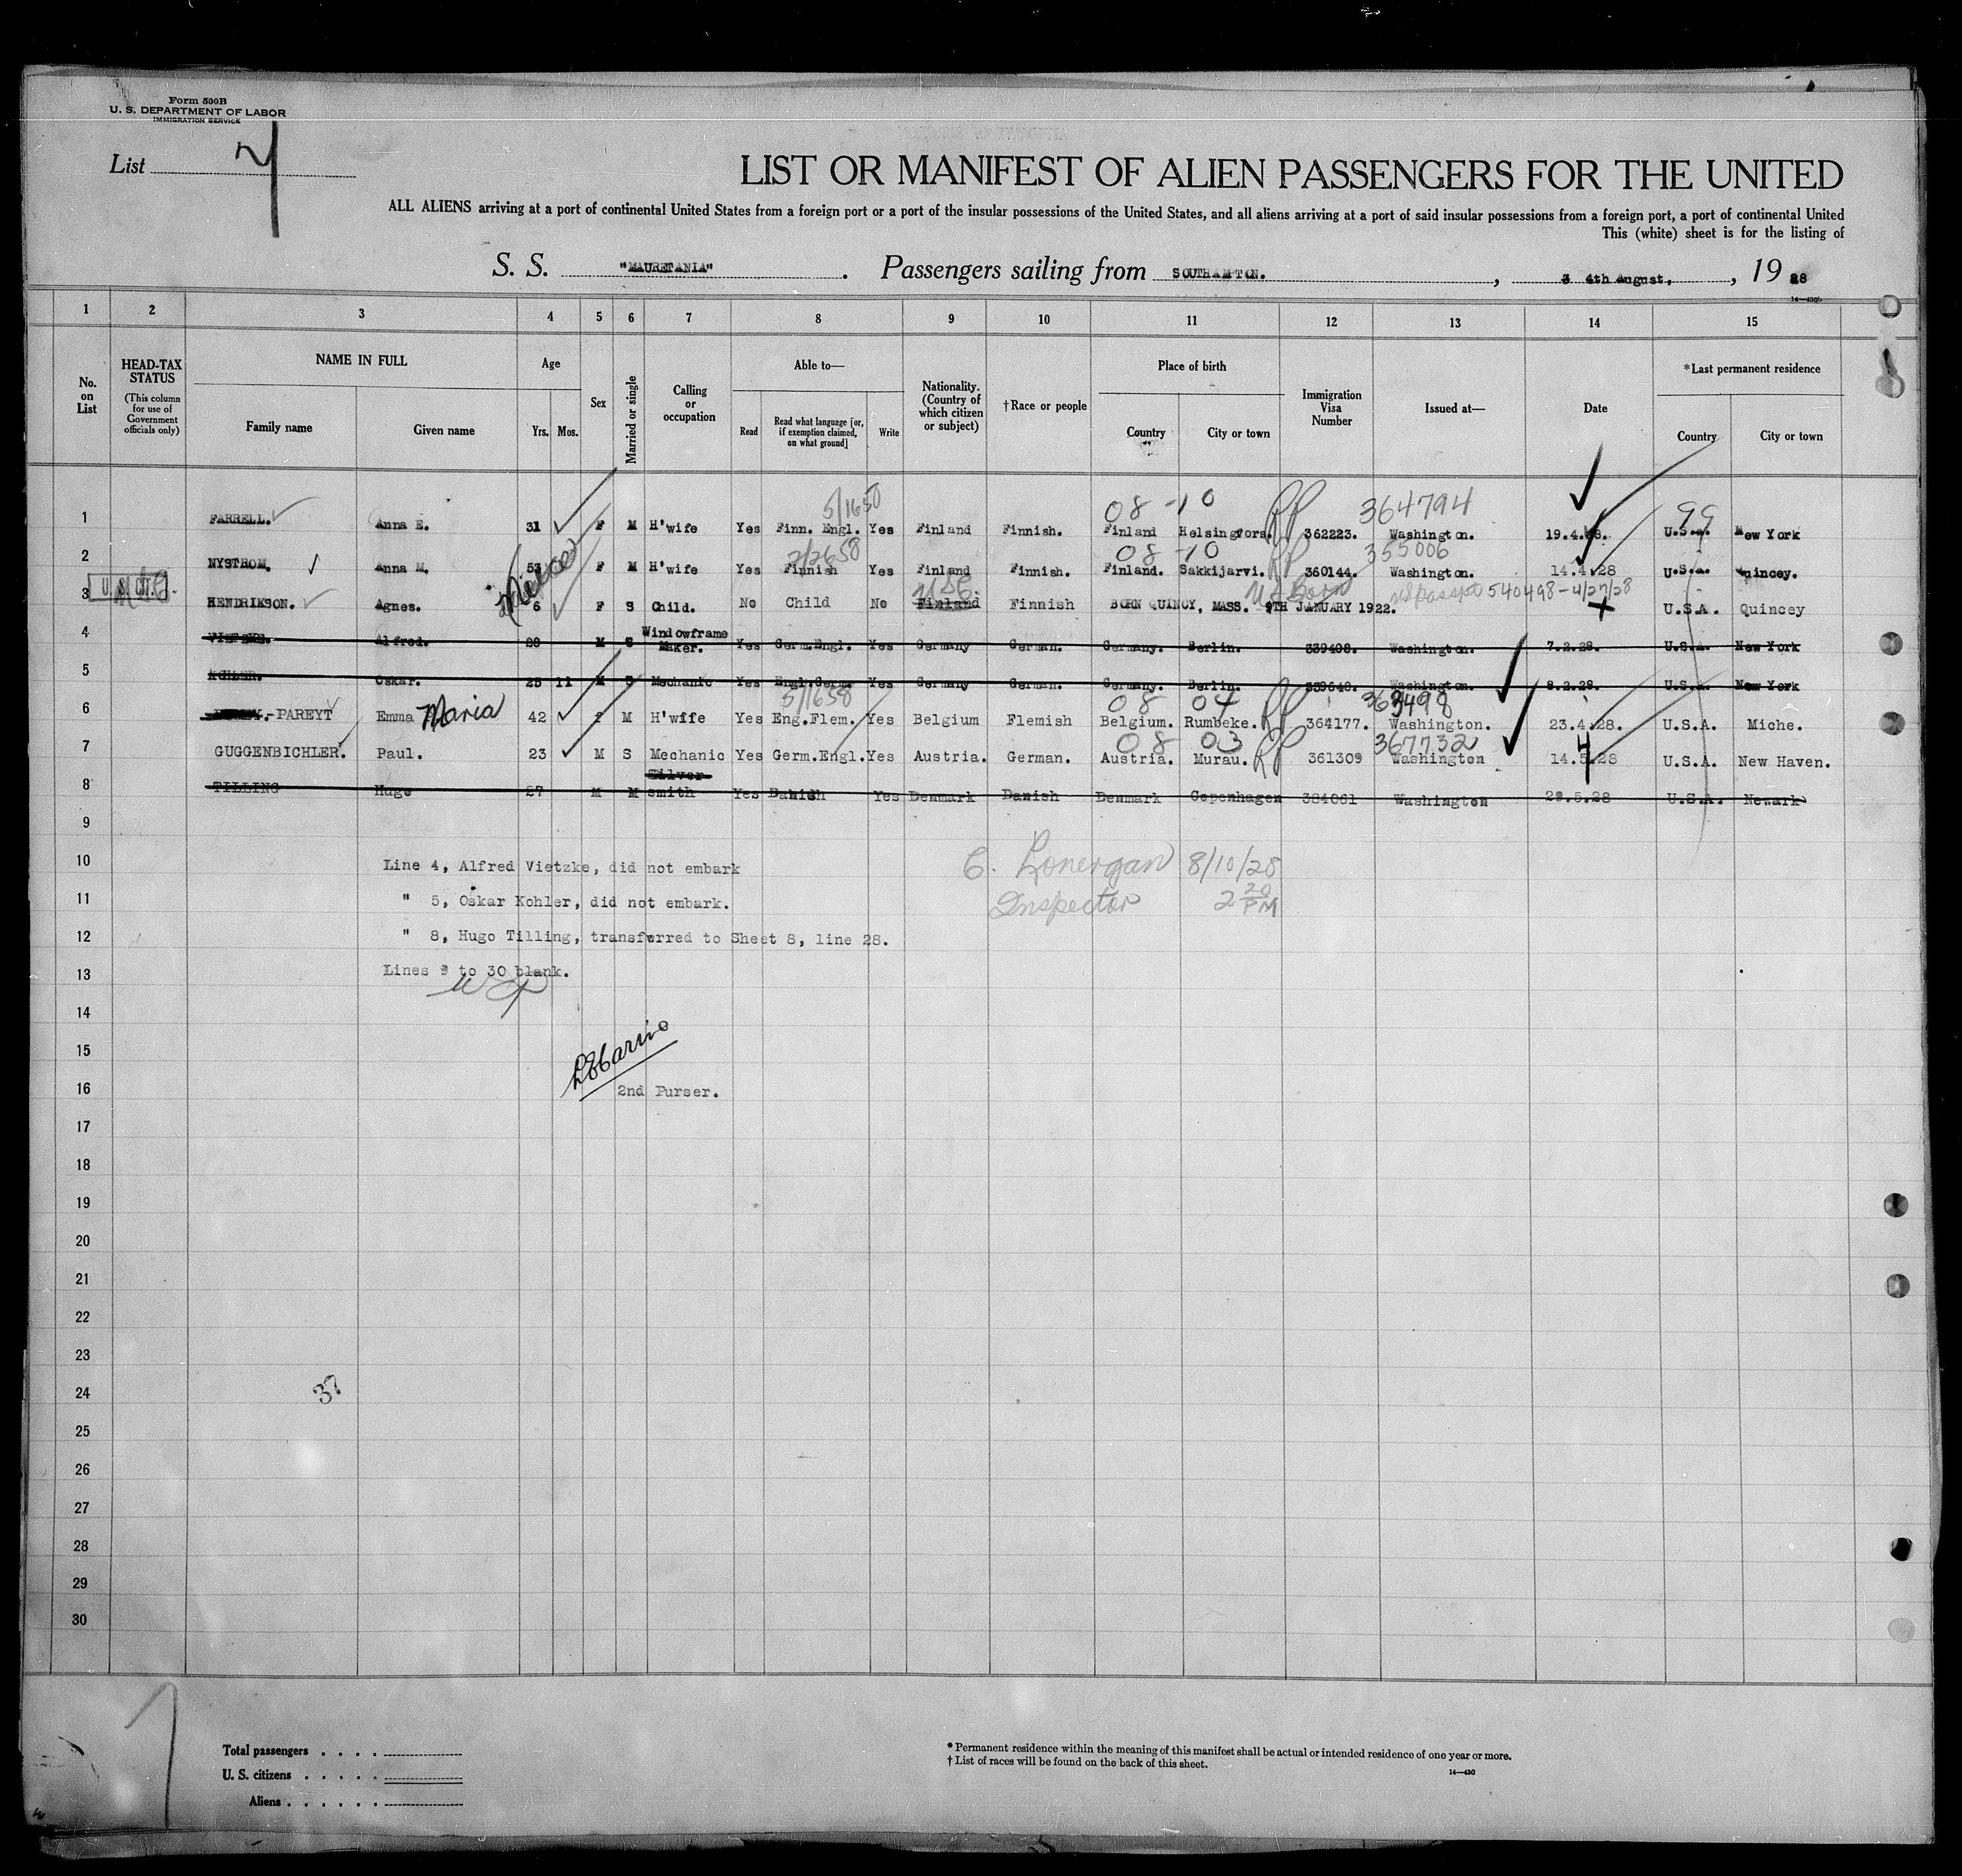 Form 500B
U. S. DEPARTMENT OF LABOR
IMMIGRATION SERVICE
List 7
LIST OR MANIFEST OF ALIEN PASSENGERS FOR THE UNITED
ALL ALIENS arriving at a port of continental United States from a foreign port or a port of the insular possessions of the United States, and all aliens arriving at a port of said insular possessions from a foreign port, a port of continental United
This (white) sheet is for the listing of
S. S. "MAURETANIA". Passengers sailing from SOUTHAMPTON. , 4th August, , 19 28
14—430b
1 2 3 4 5 6 7 8 9 10 11 12 13 14 15
No. on List
HEAD-TAX STATUS
(This column for use of Government officials only)
NAME IN FULL
Family name Given name
Age
Yrs. Mos.
Sex
Married or single
Calling or occupation
Able to—
Read Read what language [or, if exemption claimed, on what ground] Write
Nationality. (Country of which citizen or subject)
†Race or people
Place of birth
Country City or town
Immigration Visa Number
Issued at—
Date
*Last permanent residence
Country City or town
5/1650 08 -10 RP 364794 99
1 FARRELL. Anna E. 31 F M H'wife Yes Finn. Engl. Yes Finland Finnish. Finland Helsingfors. 362223. Washington. 19.4.28. U.S.A. New York
2/2658 08 -10 RP 355006
2 NYSTROM. Anna M. 53 F M H'wife Yes Finnish Yes Finland Finnish. Finland. Sakkijarvi. 360144. Washington. 14.4.28 U.S.A. Quincey.
U. S. CIT. USC US Born US Passpt 540498-4/27/28
3 HENDRIKSON. Agnes. 6 F S Child. No Child No Finland Finnish BORN QUINCY, MASS. 9TH JANUARY 1922. U.S.A. Quincey
4 VIETZKE. Alfred. 28 M S Windowframe Maker. Yes Germ.Engl. Yes Germany German. Germany. Berlin. 339408. Washington. 7.2.28. U.S.A. New York
5 KOHLER. Oskar. 25 11 M S Mechanic Yes Engl.Germ. Yes Germany German. Germany. Berlin. 339648. Washington. 8.2.28. U.S.A. New York
5/1658 08 04 RP 363498
6 -PAREYT Emma Maria 42 f M H'wife Yes Eng.Flem. Yes Belgium Flemish Belgium. Rumbeke. 364177. Washington. 23.4.28. U.S.A. Miche.
08 03 RP 367732 4
7 GUGGENBICHLER. Paul. 23 M S Mechanic Yes Germ.Engl. Yes Austria. German. Austria. Murau. 361309 Washington 14.5.28 U.S.A. New Haven.
8 TILLING Hugo 27 M M Silver smith Yes Danish Yes Denmark Danish Denmark Copenhagen 384061 Washington 29.5.28 U.S.A. Newark
9
10 Line 4, Alfred Vietzke, did not embark C. Lonergan 8/10/28
11 " 5, Oskar Kohler, did not embark. Inspector 2 20 PM
12 " 8, Hugo Tilling, transferred to Sheet 8, line 28.
13 Lines 9 to 30 blank.
14
15
16 2nd Purser.
17
18
19
20
21
22
23
24 37
25
26
27
28
29
30
7
Total passengers . . . .
U. S. citizens . . . . .
Aliens . . . . . .
* Permanent residence within the meaning of this manifest shall be actual or intended residence of one year or more.
† List of races will be found on the back of this sheet.
14—430